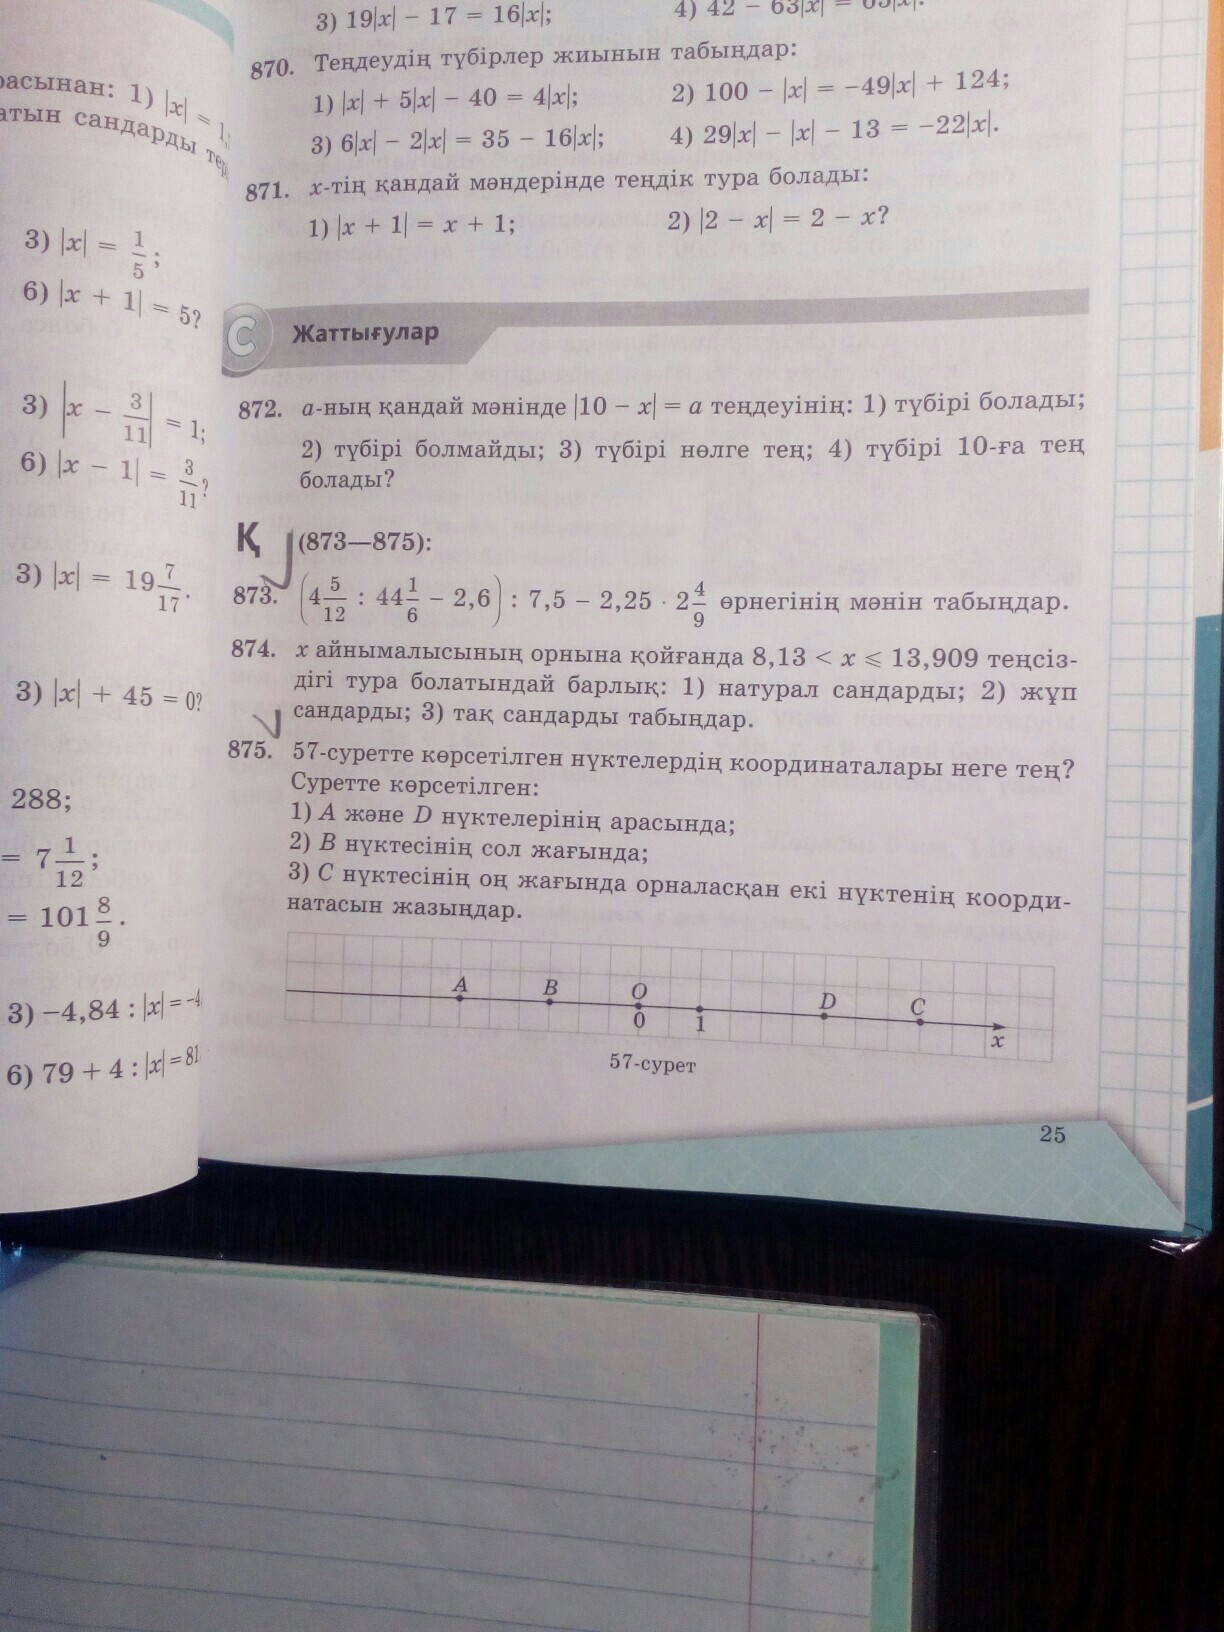 расынан: 1) |x| = 1;
атын сандарды
3) |x| = 1/5;
6) |x + 1| = 5?
3) |x − 3/11| = 1;
6) |x − 1| = 3/11?
3) |x| = 19 7/17.
3) |x| + 45 = 0?
288;
= 7 1/12;
= 101 8/9.
3) −4,84 : |x| = −4
6) 79 + 4 : |x| = 81
3) 19|x| − 17 = 16|x|; 4) 42 − 63|x| = 65|x|.
870. Теңдеудің түбірлер жиынын табыңдар:
1) |x| + 5|x| − 40 = 4|x|; 2) 100 − |x| = −49|x| + 124;
3) 6|x| − 2|x| = 35 − 16|x|; 4) 29|x| − |x| − 13 = −22|x|.
871. x-тің қандай мәндерінде теңдік тура болады:
1) |x + 1| = x + 1; 2) |2 − x| = 2 − x?
C Жаттығулар
872. a-ның қандай мәнінде |10 − x| = a теңдеуінің: 1) түбірі болады;
2) түбірі болмайды; 3) түбірі нөлге тең; 4) түбірі 10-ға тең
болады?
Қ (873—875):
873. (4 5/12 : 44 1/6 − 2,6) : 7,5 − 2,25 · 2 4/9 өрнегінің мәнін табыңдар.
874. x айнымалысының орнына қойғанда 8,13 < x ⩽ 13,909 теңсіз-
дігі тура болатындай барлық: 1) натурал сандарды; 2) жұп
сандарды; 3) тақ сандарды табыңдар.
875. 57-суретте көрсетілген нүктелердің координаталары неге тең?
Суретте көрсетілген:
1) A және D нүктелерінің арасында;
2) B нүктесінің сол жағында;
3) C нүктесінің оң жағында орналасқан екі нүктенің коорди-
натасын жазыңдар.
A B O D C
0 1 x
57-сурет
25